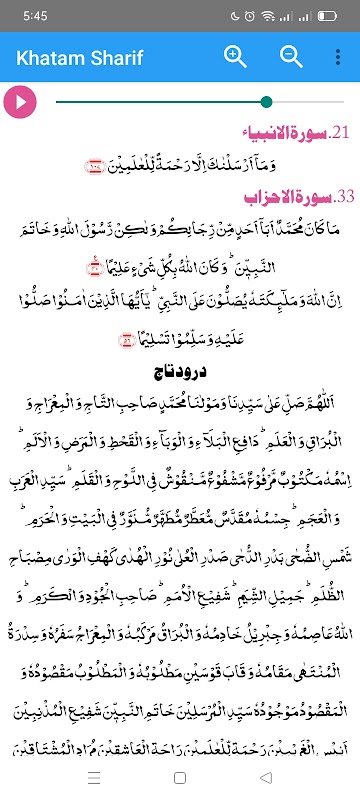 5:45
Khatam Sharif
21.سورة الانبياء
وَمَآ اَرْسَلْنٰكَ اِلَّا رَحْمَةً لِّلْعٰلَمِيْنَ ﴿١٠٧﴾
33.سورة الاحزاب
مَا كَانَ مُحَمَّدٌ اَبَآ اَحَدٍ مِّنْ رِّجَالِكُمْ وَلٰكِنْ رَّسُوْلَ اللّٰهِ وَخَاتَمَ
النَّبِيّٖنَ ؕ وَكَانَ اللّٰهُ بِكُلِّ شَىْءٍ عَلِيْمًا ﴿٤٠﴾
اِنَّ اللّٰهَ وَمَلٰٓئِكَتَهٗ يُصَلُّوْنَ عَلَى النَّبِيِّ ؕ يٰٓاَيُّهَا الَّذِيْنَ اٰمَنُوْا صَلُّوْا
عَلَيْهِ وَسَلِّمُوْا تَسْلِيْمًا ﴿٥٦﴾
درود تاج
اَللّٰهُمَّ صَلِّ عَلٰى سَيِّدِنَا وَمَوْلٰنَا مُحَمَّدٍ صَاحِبِ التَّاجِ وَالْمِعْرَاجِ وَ
الْبُرَاقِ وَالْعَلَمِ ؕ دَافِعِ الْبَلَآءِ وَالْوَبَآءِ وَالْقَحْطِ وَالْمَرَضِ وَالْاَلَمِ ؕ
اِسْمُهٗ مَكْتُوْبٌ مَّرْفُوْعٌ مَّشْفُوْعٌ مَّنْقُوْشٌ فِى اللَّوْحِ وَالْقَلَمِ ؕ سَيِّدِ الْعَرَبِ
وَالْعَجَمِ ؕ جِسْمُهٗ مُقَدَّسٌ مُّعَطَّرٌ مُّطَهَّرٌ مُّنَوَّرٌ فِى الْبَيْتِ وَالْحَرَمِ ؕ
شَمْسِ الضُّحٰى بَدْرِ الدُّجٰى صَدْرِ الْعُلٰى نُوْرِ الْهُدٰى كَهْفِ الْوَرٰى مِصْبَاحِ
الظُّلَمِ ؕ جَمِيْلِ الشِّيَمِ ؕ شَفِيْعِ الْاُمَمِ ؕ صَاحِبِ الْجُوْدِ وَالْكَرَمِ ؕ وَ
اللّٰهُ عَاصِمُهٗ وَجِبْرِيْلُ خَادِمُهٗ وَالْبُرَاقُ مَرْكَبُهٗ وَالْمِعْرَاجُ سَفَرُهٗ وَسِدْرَةُ
الْمُنْتَهٰى مَقَامُهٗ وَقَابَ قَوْسَيْنِ مَطْلُوْبُهٗ وَالْمَطْلُوْبُ مَقْصُوْدُهٗ وَ
الْمَقْصُوْدُ مَوْجُوْدُهٗ سَيِّدِ الْمُرْسَلِيْنَ خَاتَمِ النَّبِيّٖنَ شَفِيْعِ الْمُذْنِبِيْنَ
اَنِيْسِ الْغَرِيْبِيْنَ رَحْمَةٍ لِّلْعٰلَمِيْنَ رَاحَةِ الْعَاشِقِيْنَ مُرَادِ الْمُشْتَاقِيْنَ